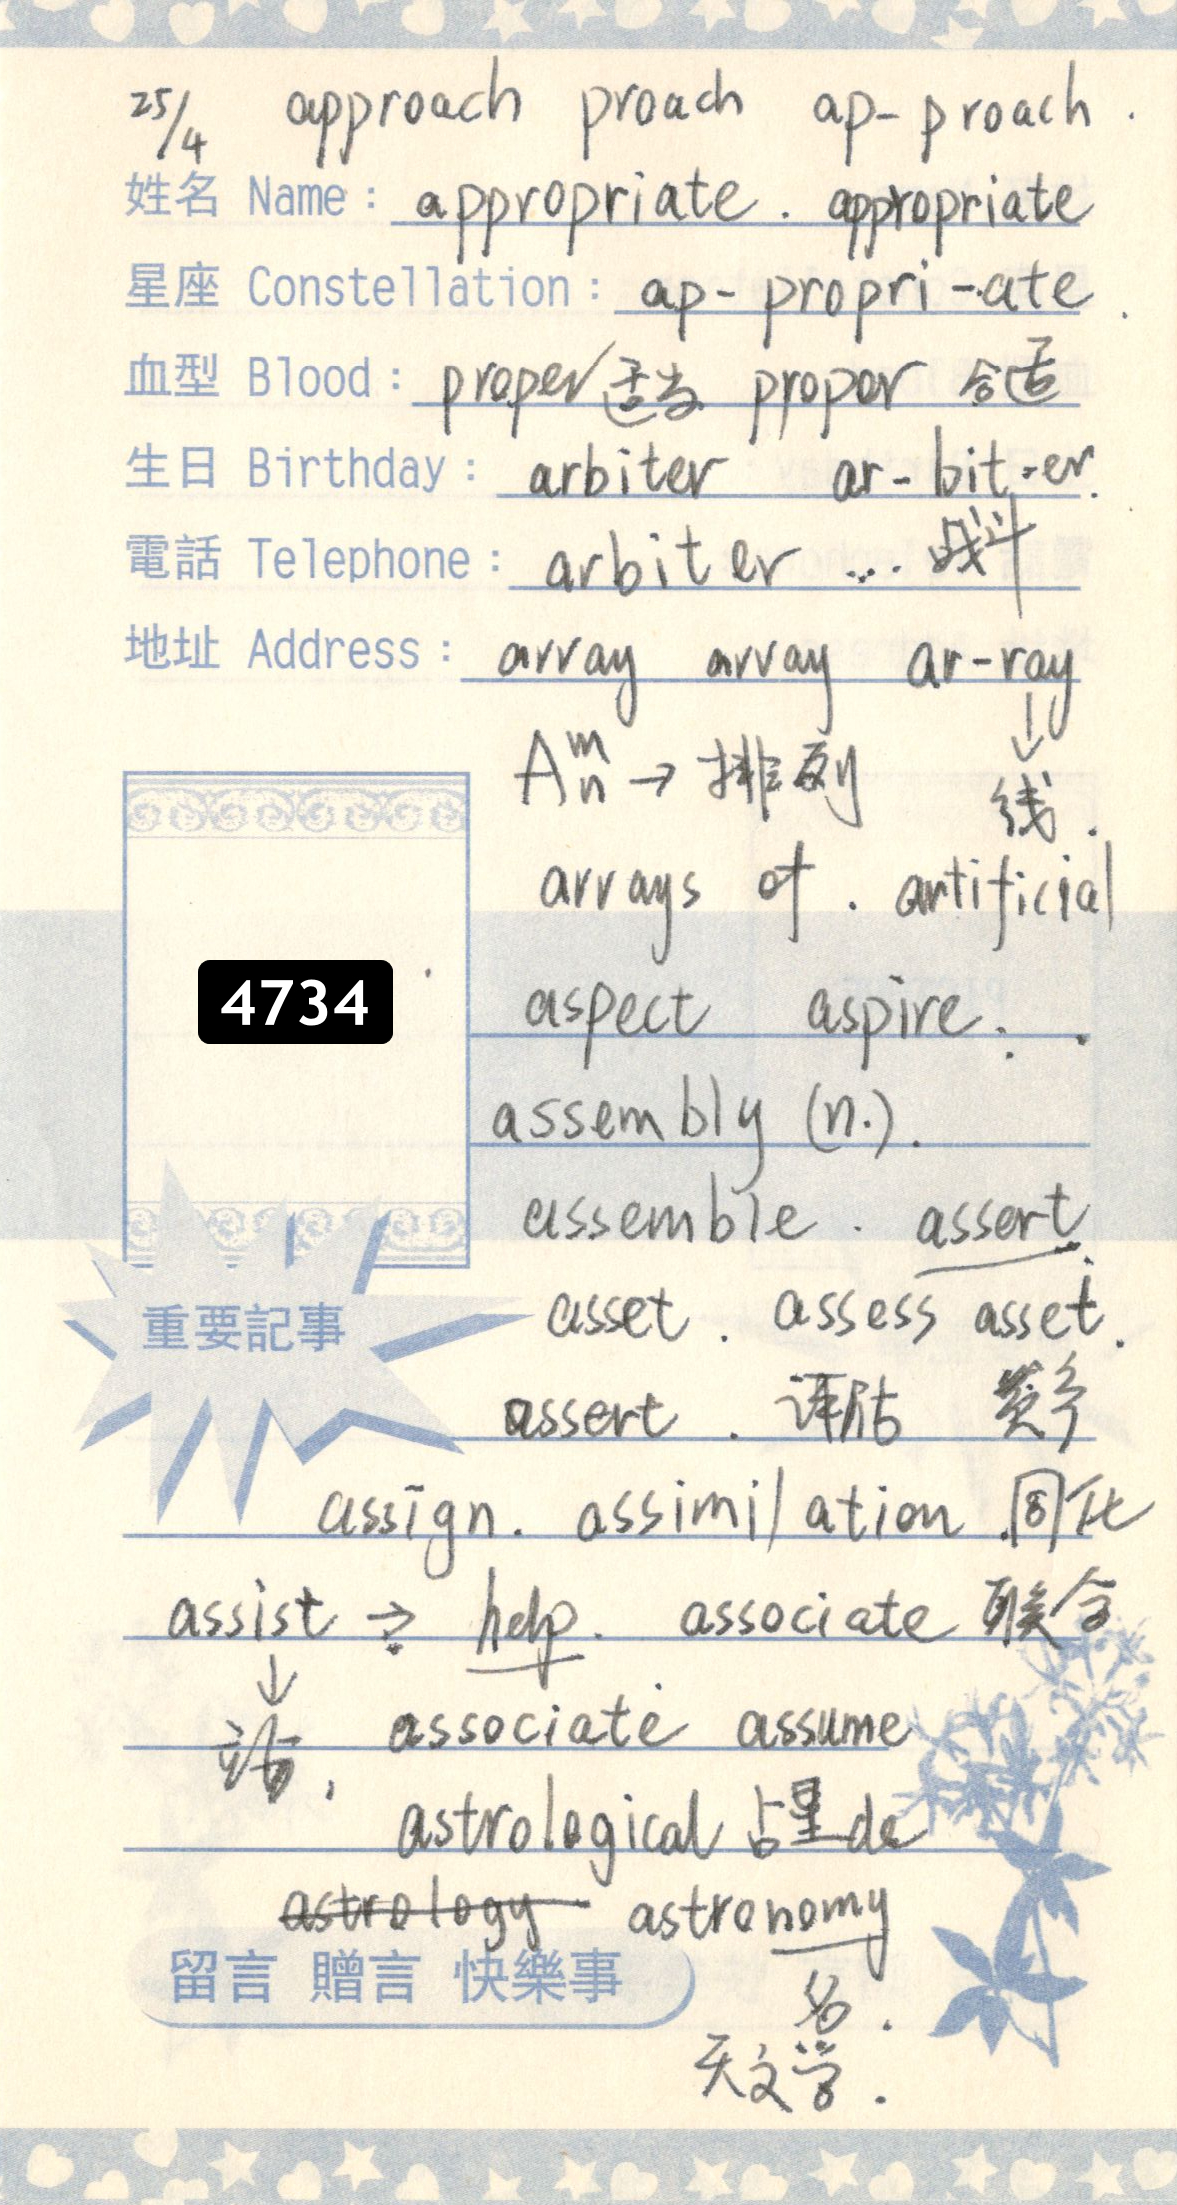 25/4 approach proach ap-proach.
姓名 Name: appropriate. appropriate
星座 Constellation: ap-propri-ate.
血型 Blood: proper 适当 proper 合适
生日 Birthday: arbiter ar-bit-er.
電話 Telephone: arbiter ... 战斗
地址 Address: array array ar-ray
A m n → 排列 ↓ 线.
arrays of. artificial
4734
aspect aspire.
assembly (n.).
assemble. assert.
重要記事
asset. assess asset.
assert. 评估 资产
assign. assimilation. 同化
assist → help. associate 联合
↓ 站, associate assume
astrological 占星de
astrology astronomy
留言 贈言 快樂事
名.
天文学.